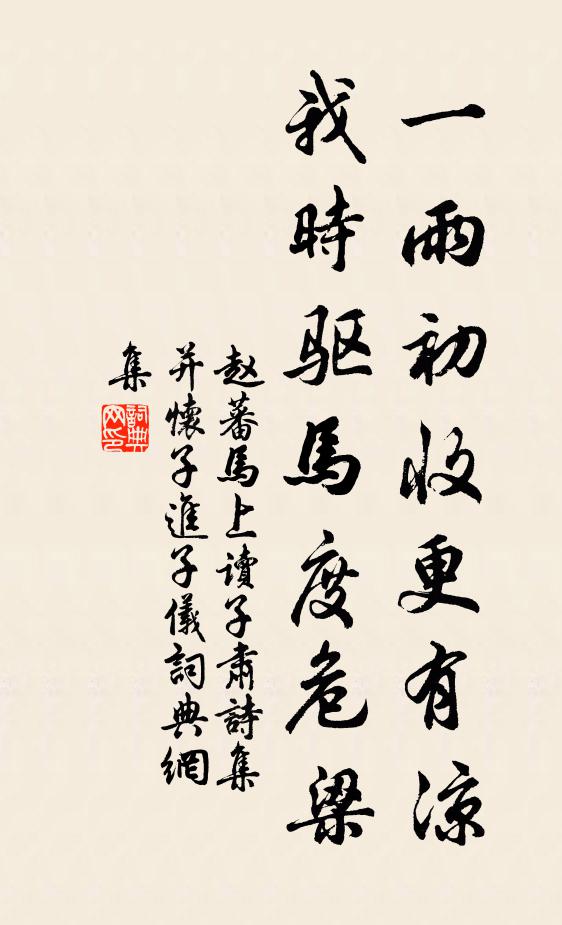 一雨初收更有涼
我時驱馬度危梁
赵蕃馬上讀子肅詩集
并懷子進子儀詞典網
集
詞典网印